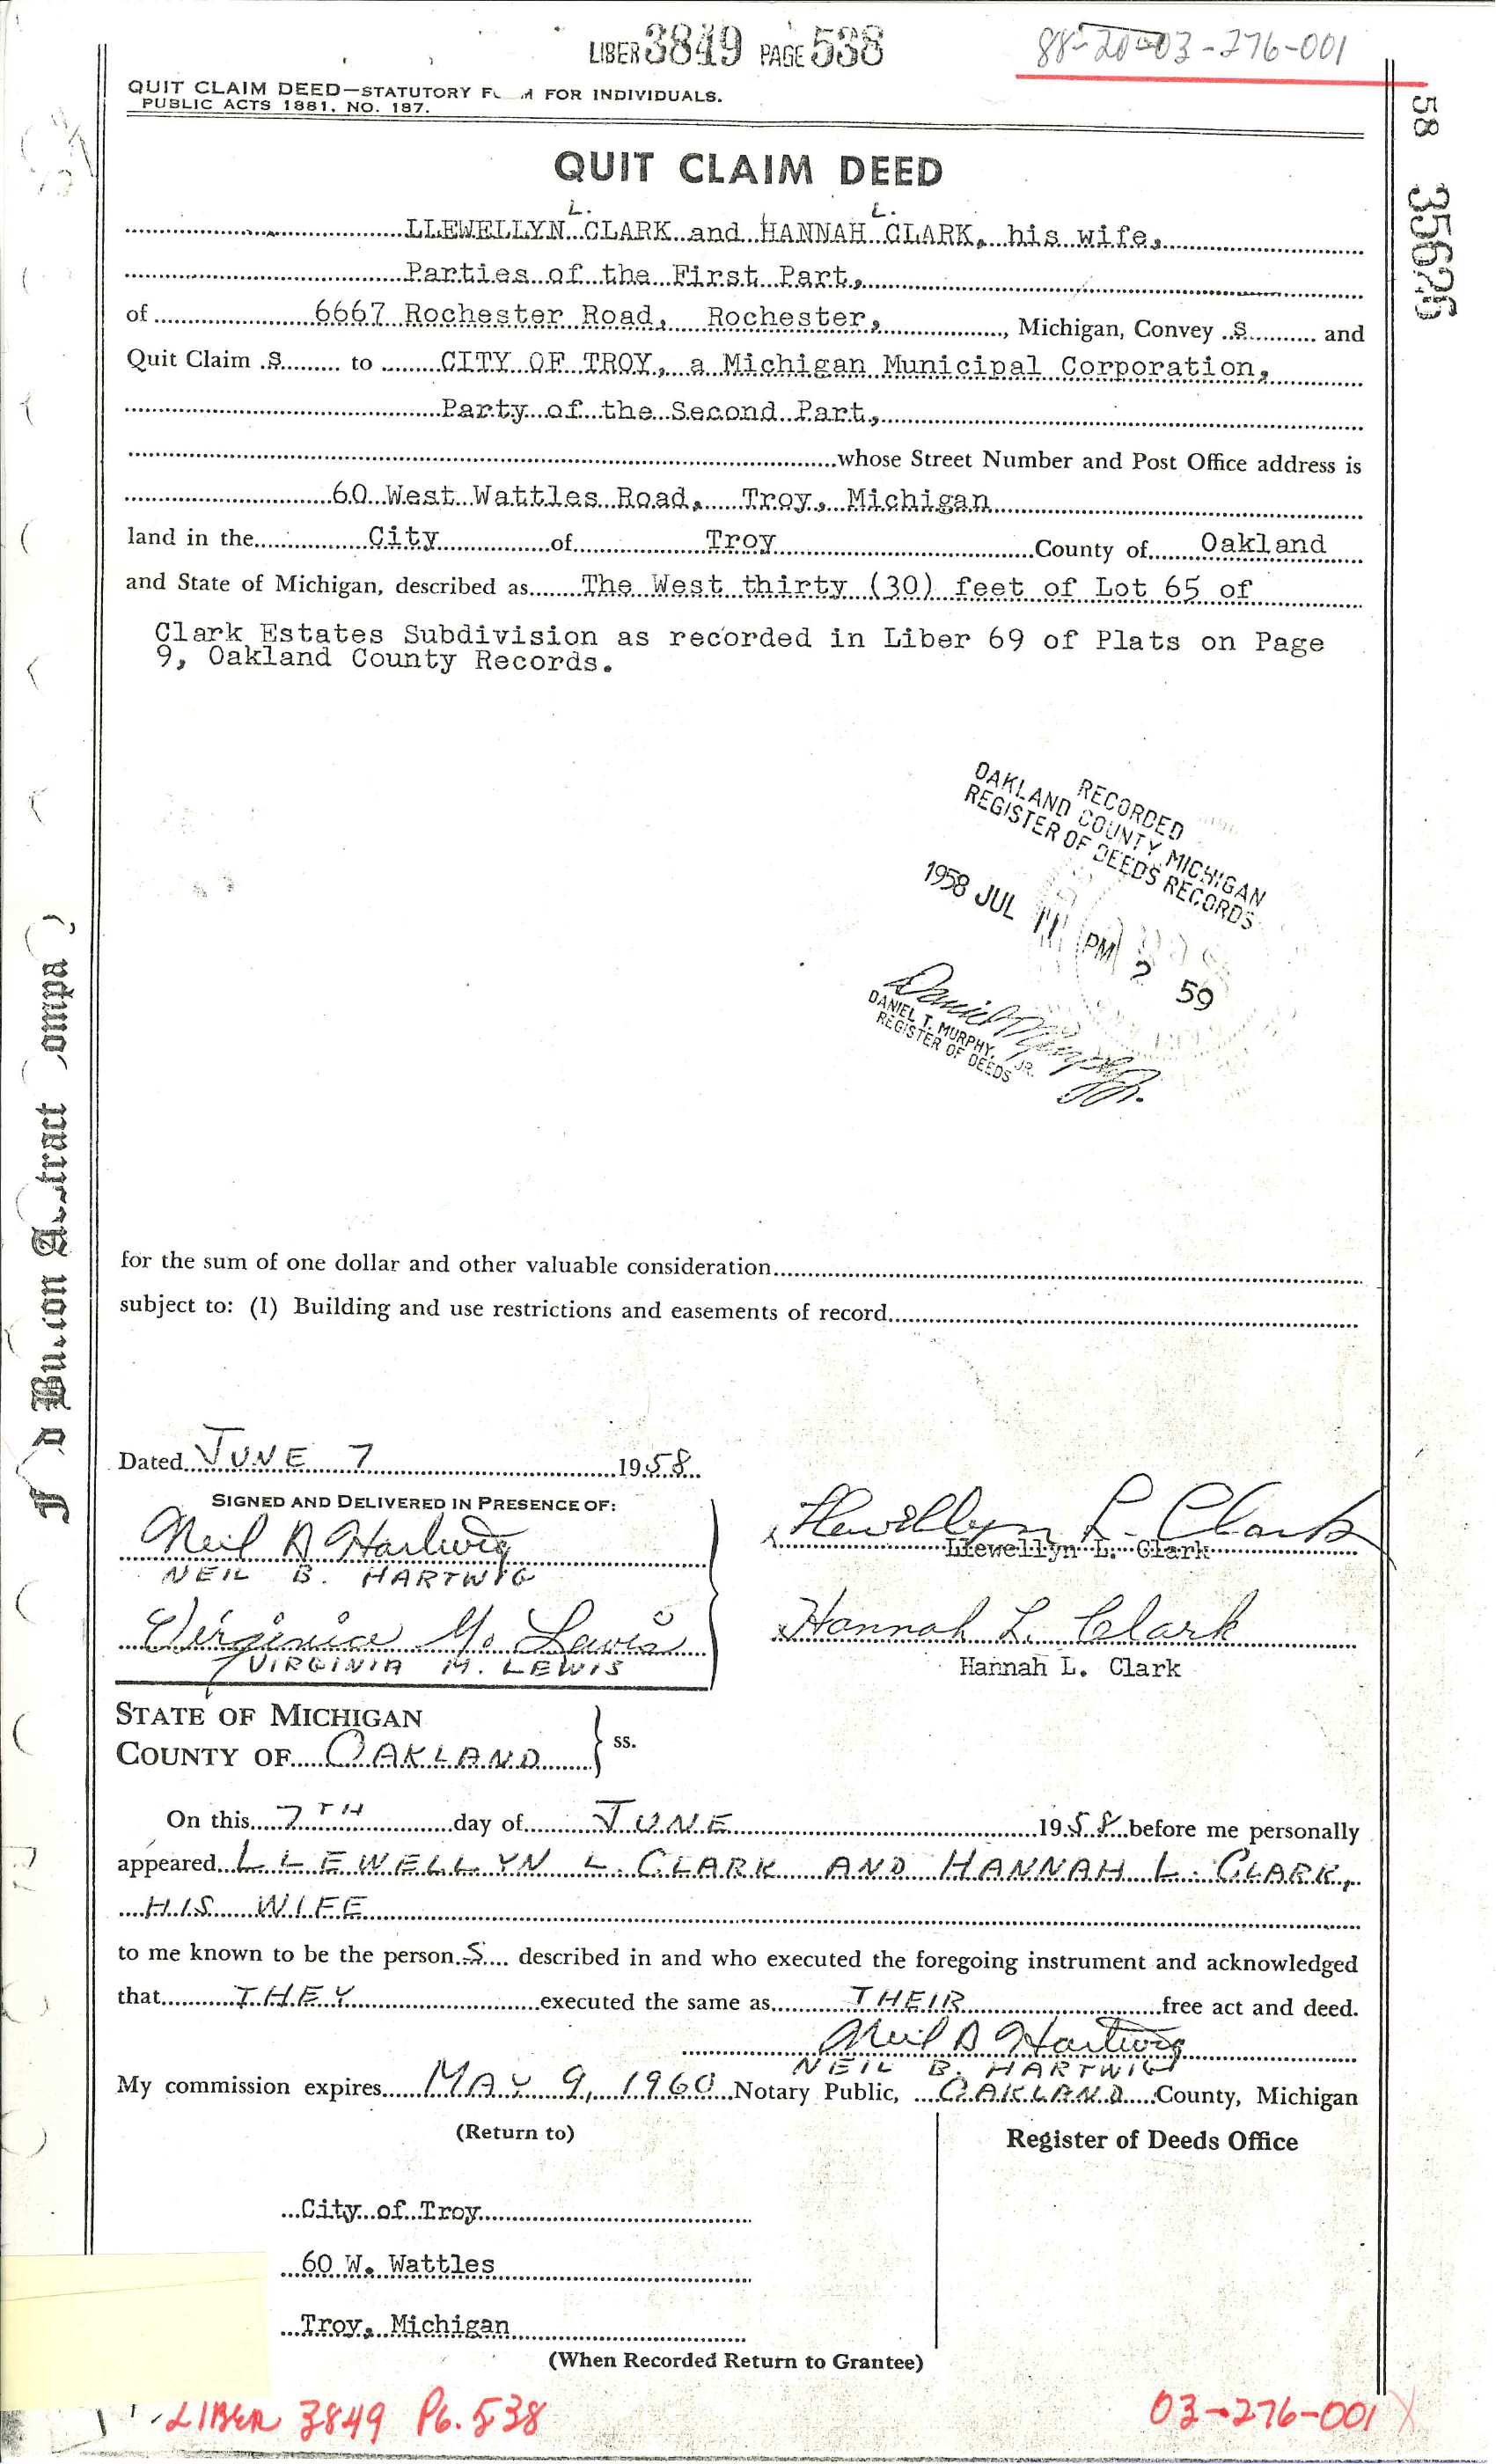 LIBER 3849 PAGE 538
88-20-03-276-001
QUIT CLAIM DEED—STATUTORY F   M FOR INDIVIDUALS.
PUBLIC ACTS 1881, NO. 187.
58 35626
QUIT CLAIM DEED
LLEWELLYN L. CLARK and HANNAH L. CLARK, his wife,
Parties of the First Part,
of 6667 Rochester Road, Rochester, , Michigan, Convey s and
Quit Claim s to CITY OF TROY, a Michigan Municipal Corporation,
Party of the Second Part,
whose Street Number and Post Office address is
60 West Wattles Road, Troy, Michigan
land in the City of Troy County of Oakland
and State of Michigan, described as The West thirty (30) feet of Lot 65 of
Clark Estates Subdivision as recorded in Liber 69 of Plats on Page
9, Oakland County Records.
RECORDED
OAKLAND COUNTY MICHIGAN
REGISTER OF DEEDS RECORDS
1958 JUL 11 PM 2 59
Daniel T. Murphy Jr.
DANIEL T. MURPHY, JR.
REGISTER OF DEEDS
for the sum of one dollar and other valuable consideration
subject to: (1) Building and use restrictions and easements of record
Dated JUNE 7 1958
SIGNED AND DELIVERED IN PRESENCE OF:
Neil B Hartwig
NEIL B. HARTWIG
Virginia M. Lewis
VIRGINIA M. LEWIS
Llewellyn L. Clark
Llewellyn L. Clark
Hannah L. Clark
Hannah L. Clark
STATE OF MICHIGAN
COUNTY OF OAKLAND ss.
On this 7TH day of JUNE 1958 before me personally
appeared LLEWELLYN L. CLARK AND HANNAH L. CLARK,
HIS WIFE
to me known to be the person S described in and who executed the foregoing instrument and acknowledged
that THEY executed the same as THEIR free act and deed.
Neil B Hartwig
NEIL B. HARTWIG
My commission expires MAY 9, 1960 Notary Public, OAKLAND County, Michigan
(Return to)
Register of Deeds Office
City of Troy
60 W. Wattles
Troy, Michigan
(When Recorded Return to Grantee)
LIBER 3849 PG. 538
03-276-001 X